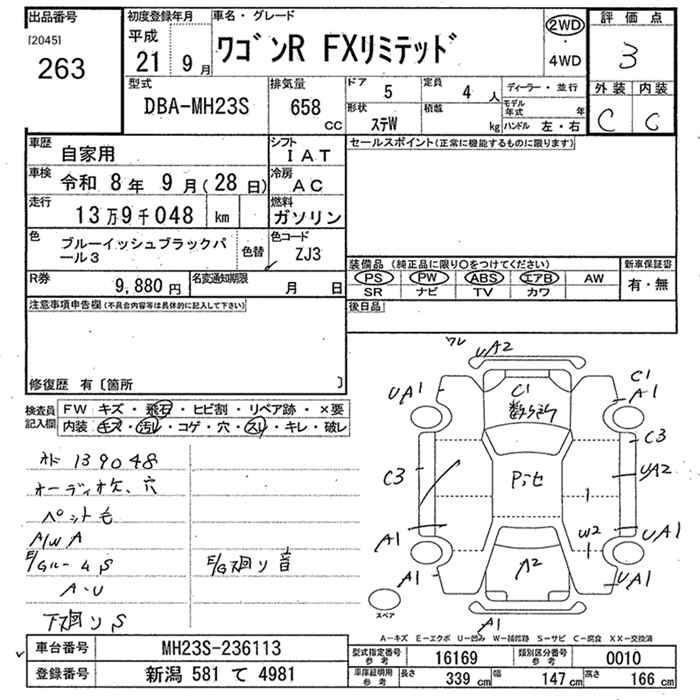 出品番号
[2045]
263
初度登録年月
平成
21 9月
車名・グレード
ワゴンR FXリミテッド
2WD
・
4WD
評価点
3
外装 内装
C C
型式
DBA-MH23S
排気量
658
CC
ドア 5
定員 4 人
形状 ステW
積載 kg
ディーラー・並行
モデル年式 年
ハンドル 左・右
車歴 自家用
シフト IAT
車検 令和 8年 9月(28日)
冷房 AC
走行 13万9千048 km
燃料 ガソリン
色 ブルーイッシュブラックパール3
色替
色コード ZJ3
R券 9,880円
名変通知期限 月 日
セールスポイント(正常に機能するものに限ります)
装備品 (純正品に限り○をつけてください)
PS PW ABS エアB AW
SR ナビ TV カワ
新車保証書
有・無
後日品
注意事項申告欄(不具合内容等は具体的に記入して下さい)
修復歴 有〔箇所 〕
検査員記入欄
FW キズ・飛石・ヒビ割・リペア跡・×要
内装 キズ・汚レ・コゲ・穴・スレ・キレ・破レ
メ 139048
オーディオケ、穴
ペット毛
A/W A
E/Gルーム S
A・U
下廻り S
E/G廻り音
ワレ UA2
UA1
C1
C1
A1
C3
C3
UA2
W2
UA1
A1
A1
A2
UA1
A1
スペア
A-キズ E-エクボ U-凹み W-補修跡 S-サビ C-腐食 XX-交換済
車台番号 MH23S-236113
登録番号 新潟 581 て 4981
型式指定番号 参考 16169
類別区分番号 参考 0010
車庫証明用 参考 長さ 339 cm 幅 147 cm 高さ 166 cm